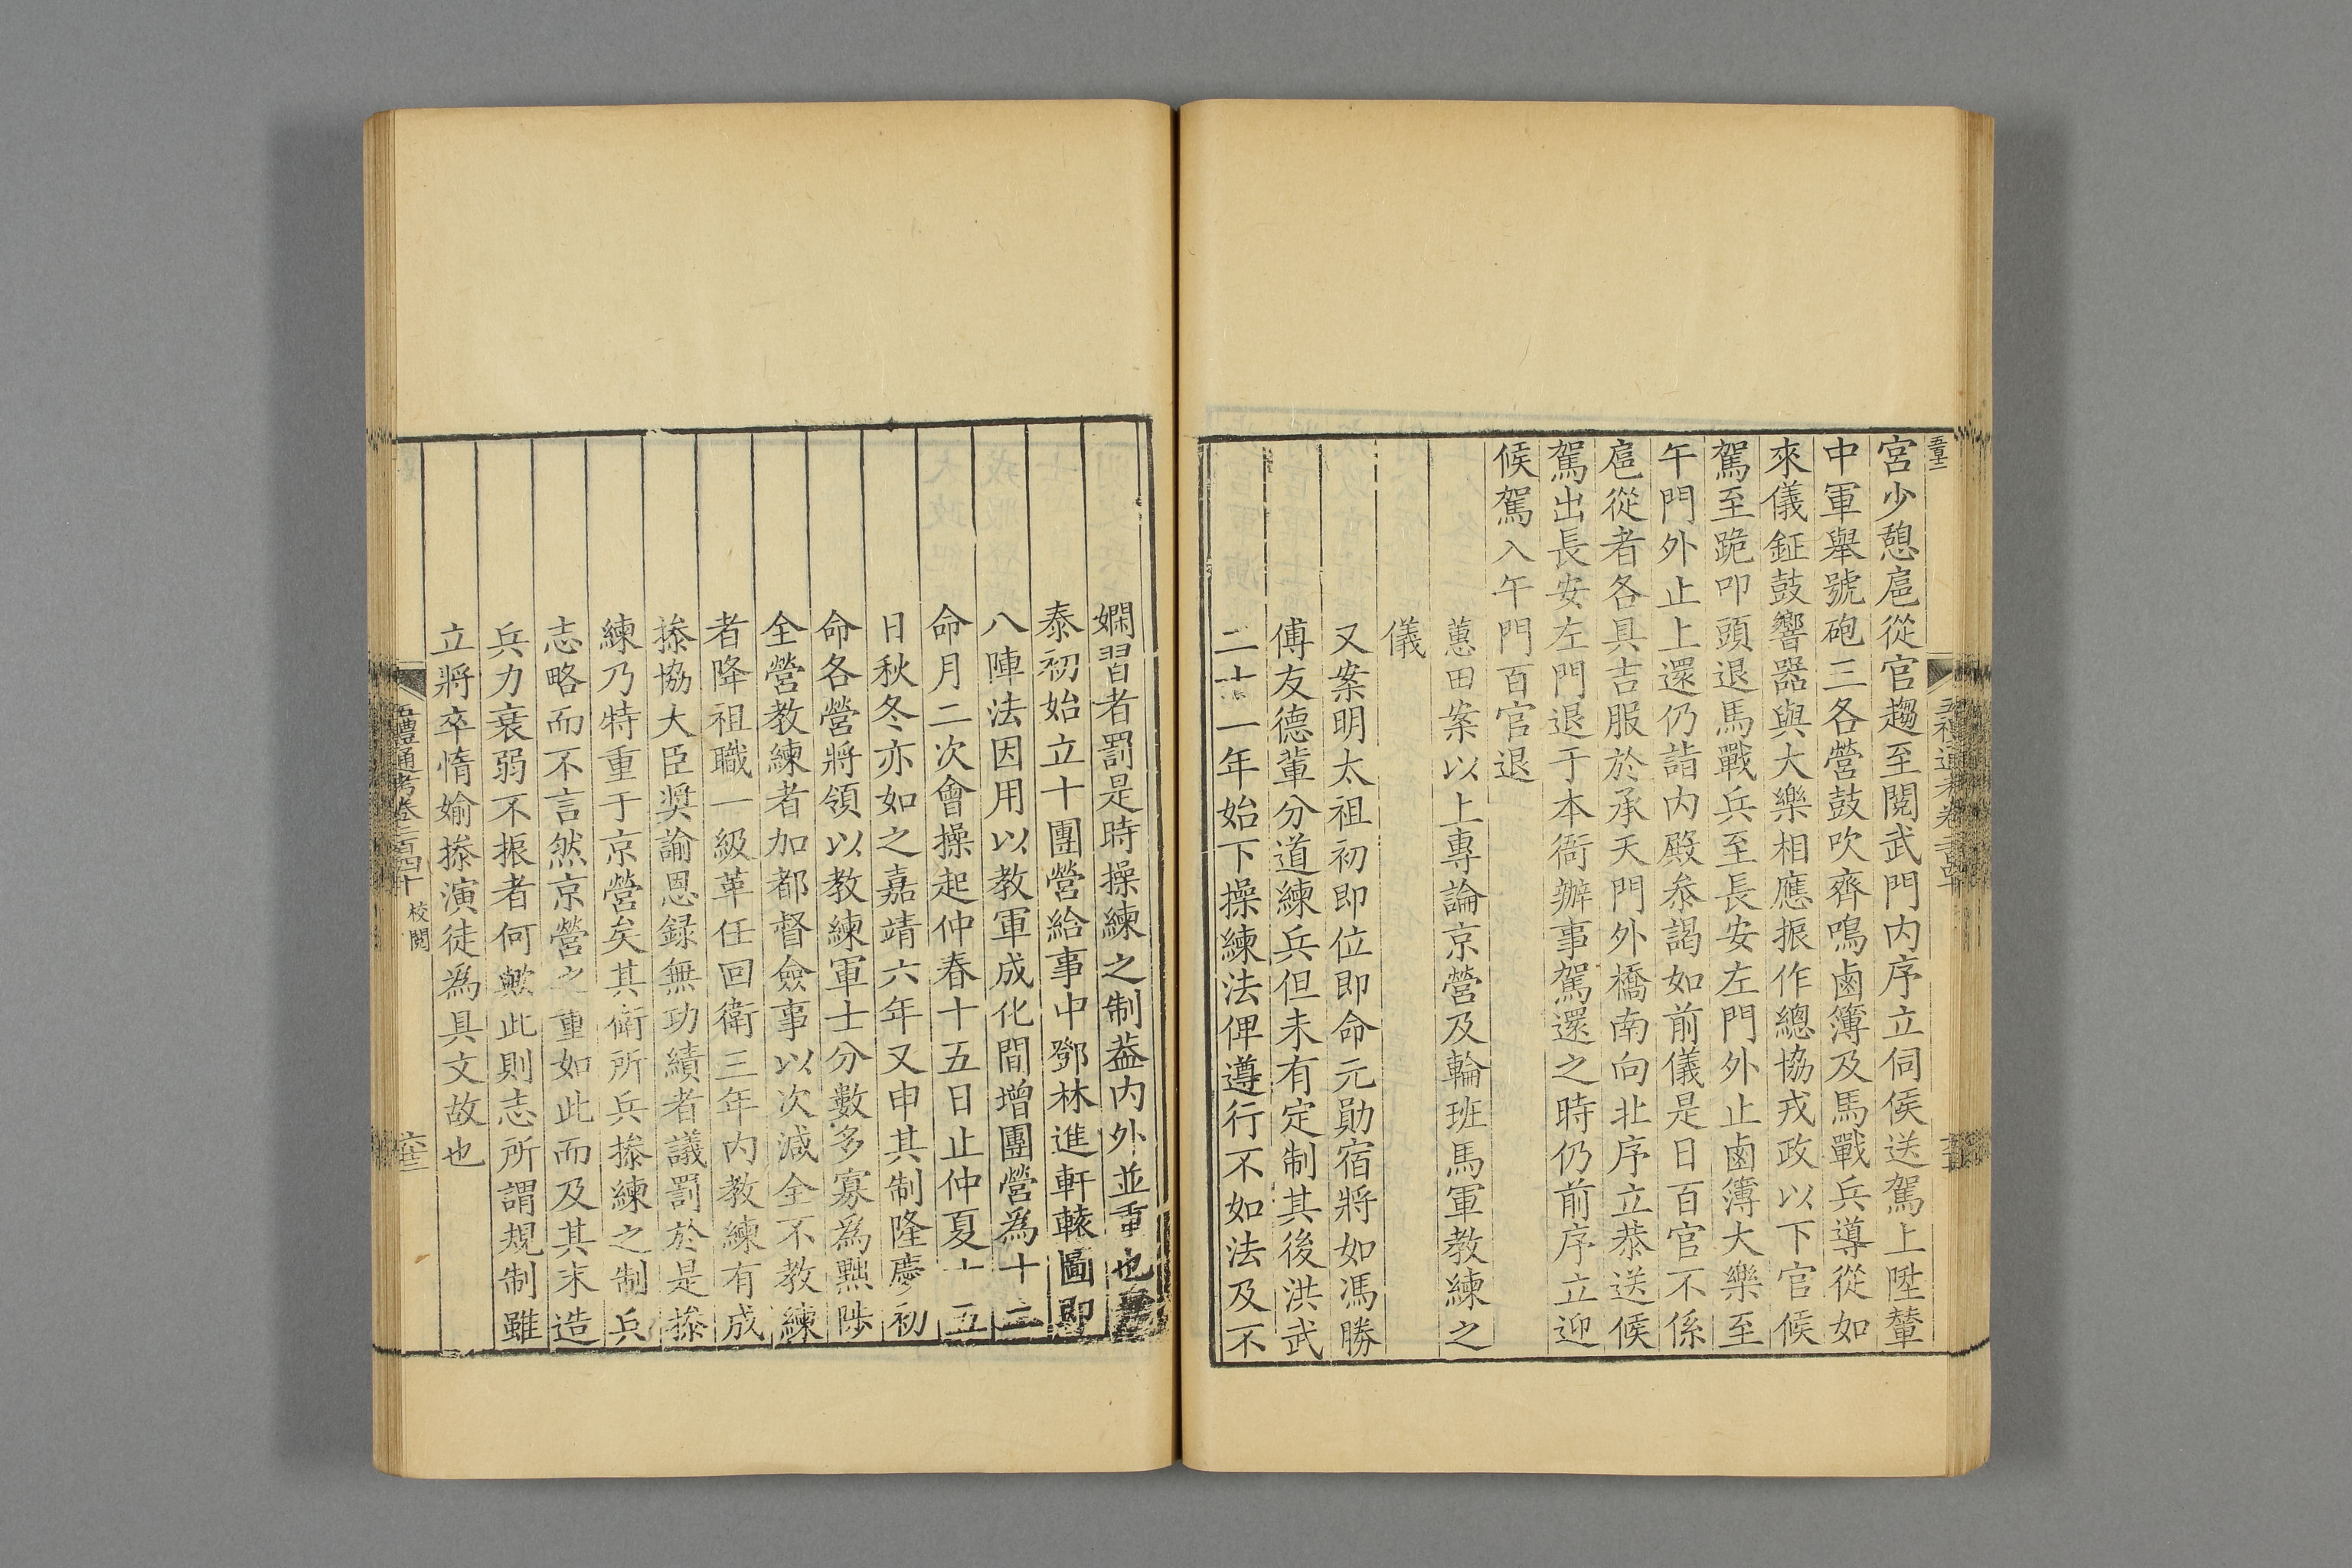 宮少憩扈從官趨至閱武門内序立伺侯送駕上陞輦
中軍舉號砲三各營鼓吹齊鳴鹵簿及馬戰兵導從如
來儀鉦鼓響器與大樂相應振作總協戎政以下官候
駕至跪叩頭退馬戰兵至長安左門外止鹵簿大樂至
午門外止上還仍詣内殿叅謁如前儀是日百官不係
扈從者各具吉服於承天門外橋南向北序立恭送候
駕出長安左門退于本衙辦事駕還之時仍前序立迎
候駕入午門百官退
蕙田案以上專論京營及輪班馬軍教練之
儀
又案明太祖初即位即命元勛宿將如馮勝
傅友德輩分道練兵但未有定制其後洪武
二十一年始下操練法俾遵行不如法及不
嫻習者罰是時操練之制葢内外並重也
泰初始立十團營給事中鄧林進軒轅圖即
八陣法因用以教軍成化間增團營為十二
命月二次會操起仲春十五日止仲夏十五
日秋冬亦如之嘉靖六年又申其制隆慶初
命各營將領以教練軍士分數多寡為黜陟
全營教練者加都督僉事以次減全不教練
者降祖職一級革任回衛三年内教練有成
操協大臣奬諭恩録無功績者議罰於是操
練乃特重于京營矣其衛所兵操練之制兵
志略而不言然京營之重如此而及其末造
兵力衰弱不振者何歟此則志所謂規制雖
立將卒惰媮操演徒為具文故也
五禮通考卷二百四十 校閱 六十三